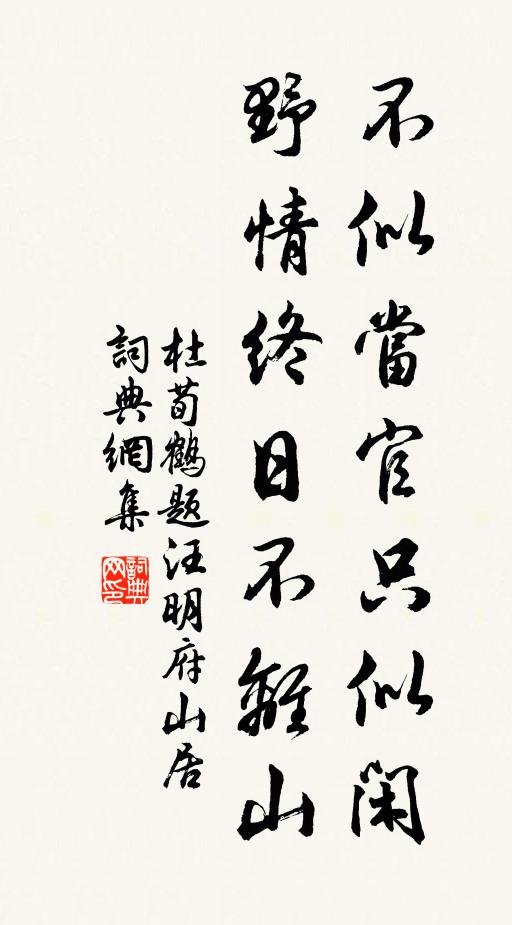 不似當官只似閑
野情終日不離山
杜荀鶴題汪明府山居
詞典網集
詞典網印